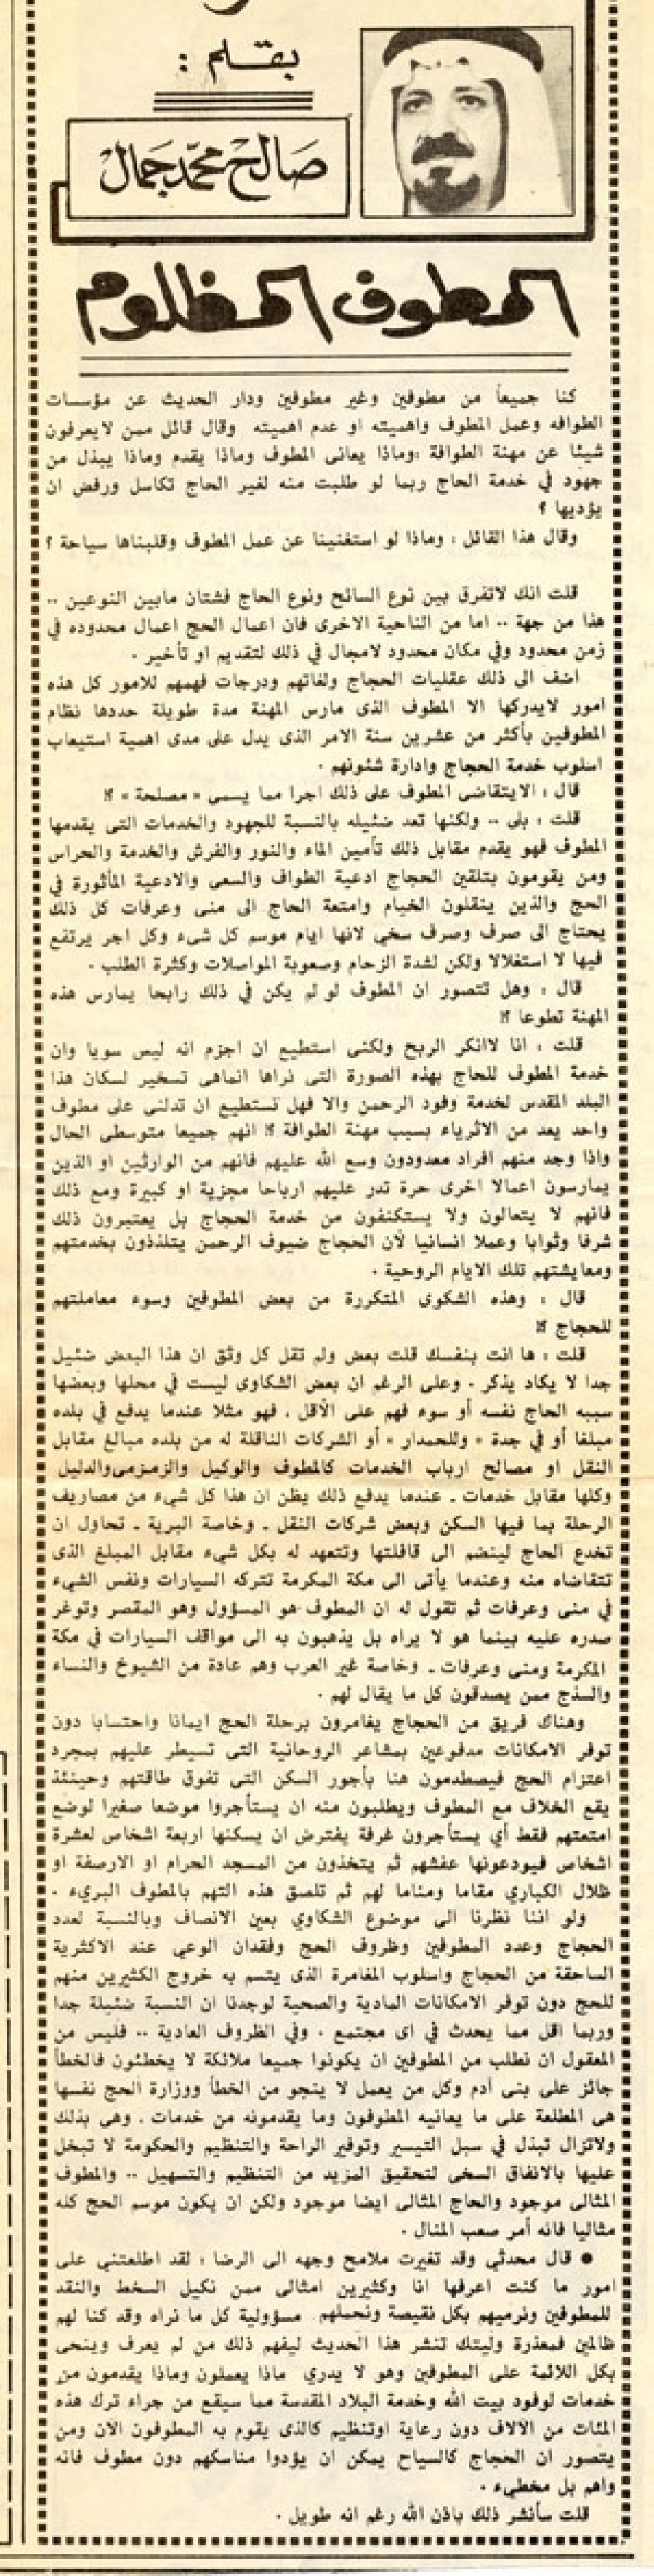 بقلم :
صالح محمد جمال
المطوف المظلوم
كنا جميعاً من مطوفين وغير مطوفين ودار الحديث عن مؤسسات
الطوافه وعمل المطوف واهميته او عدم اهميته وقال قائل ممن لايعرفون
شيئا عن مهنة الطوافة ،وماذا يعانى المطوف وماذا يقدم وماذا يبذل من
جهود في خدمة الحاج ربما لو طلبت منه لغير الحاج تكاسل ورفض ان
يؤديها ؟
وقال هذا القائل : وماذا لو استغنينا عن عمل المطوف وقلبناها سياحة ؟
قلت انك لاتفرق بين نوع السائح ونوع الحاج فشتان مابين النوعين ..
هذا من جهة .. اما من الناحية الاخرى فان اعمال الحج اعمال محدوده في
زمن محدود وفي مكان محدود لامجال في ذلك لتقديم او تأخير .
اضف الى ذلك عقليات الحجاج ولغاتهم ودرجات فهمهم للامور كل هذه
امور لايدركها الا المطوف الذى مارس المهنة مدة طويلة حددها نظام
المطوفين بأكثر من عشرين سنة الامر الذى يدل على مدى اهمية استيعاب
اسلوب خدمة الحجاج وادارة شئونهم .
قال : الايتقاضى المطوف على ذلك اجرا مما يسمى « مصلحة » ؟!
قلت : بلى .. ولكنها تعد ضئيله بالنسبة للجهود والخدمات التى يقدمها
المطوف فهو يقدم مقابل ذلك تأمين الماء والنور والفرش والخدمة والحراس
ومن يقومون بتلقين الحجاج ادعية الطواف والسعى والادعية المأثورة في
الحج والذين ينقلون الخيام وامتعة الحاج الى منى وعرفات كل ذلك
يحتاج الى صرف وصرف سخي لانها ايام موسم كل شىء وكل اجر يرتفع
فيها لا استغلالا ولكن لشدة الزحام وصعوبة المواصلات وكثرة الطلب .
قال : وهل تتصور ان المطوف لو لم يكن في ذلك رابحا يمارس هذه
المهنة تطوعا ؟!
قلت : انا لاانكر الربح ولكنى استطيع ان اجزم انه ليس سويا وان
خدمة المطوف للحاج بهذه الصورة التى نراها انماهى تسخير لسكان هذا
البلد المقدس لخدمة وفود الرحمن والا فهل تستطيع ان تدلنى على مطوف
واحد يعد من الاثرياء بسبب مهنة الطوافة ؟! انهم جميعا متوسطى الحال
واذا وجد منهم افراد معدودون وسع الله عليهم فانهم من الوارثين او الذين
يمارسون اعمالا اخرى حرة تدر عليهم ارباحا مجزية او كبيرة ومع ذلك
فانهم لا يتعالون ولا يستكنفون من خدمة الحجاج بل يعتبرون ذلك
شرفا وثوابا وعملا انسانيا لأن الحجاج ضيوف الرحمن يتلذذون بخدمتهم
ومعايشتهم تلك الايام الروحية .
قال : وهذه الشكوى المتكررة من بعض المطوفين وسوء معاملتهم
للحجاج ؟!
قلت : ها انت بنفسك قلت بعض ولم تقل كل وثق ان هذا البعض ضئيل
جدا لا يكاد يذكر . وعلى الرغم ان بعض الشكاوى ليست في محلها وبعضها
سببه الحاج نفسه أو سوء فهم على الأقل . فهو مثلا عندما يدفع في بلده
مبلغا أو في جدة « وللحمدار » أو الشركات الناقلة له من بلده مبالغ مقابل
النقل او مصالح ارباب الخدمات كالمطوف والوكيل والزمزمي والدليل
وكلها مقابل خدمات ـ عندما يدفع ذلك يظن ان هذا كل شيء من مصاريف
الرحلة بما فيها السكن وبعض شركات النقل ـ وخاصة البرية ـ تحاول ان
تخدع الحاج لينضم الى قافلتها وتتعهد له بكل شيء مقابل المبلغ الذى
تتقاضاه منه وعندما يأتى الى مكة المكرمة تتركه السيارات ونفس الشيء
في منى وعرفات ثم تقول له ان المطوف هو المسؤول وهو المقصر وتوغر
صدره عليه بينما هو لا يراه بل يذهبون به الى مواقف السيارات في مكة
المكرمة ومنى وعرفات ـ وخاصة غير العرب وهم عادة من الشيوخ والنساء
والسذج ممن يصدقون كل ما يقال لهم .
وهناك فريق من الحجاج يغامرون برحلة الحج ايمانا واحتسابا دون
توفر الامكانات مدفوعين بمشاعر الروحانية التى تسيطر عليهم بمجرد
اعتزام الحج فيصطدمون هنا بأجور السكن التى تفوق طاقتهم وحينئذ
يقع الخلاف مع المطوف ويطلبون منه ان يستأجروا موضعا صغيرا لوضع
امتعتهم فقط أي يستأجرون غرفة يفترض ان يسكنها اربعة اشخاص لعشرة
اشخاص فيودعونها عفشهم ثم يتخذون من المسجد الحرام او الارصفة او
ظلال الكباري مقاما ومناما لهم ثم تلصق هذه التهم بالمطوف البريء .
ولو اننا نظرنا الى موضوع الشكاوي بعين الانصاف وبالنسبة لعدد
الحجاج وعدد المطوفين وظروف الحج وفقدان الوعي عند الاكثرية
الساحقة من الحجاج واسلوب المغامرة الذى يتسم به خروج الكثيرين منهم
للحج دون توفر الامكانات المادية والصحية لوجدنا ان النسبة ضئيلة جدا
وربما اقل مما يحدث في اى مجتمع . وفي الظروف العادية .. فليس من
المعقول ان نطلب من المطوفين ان يكونوا جميعا ملائكة لا يخطئون فالخطأ
جائز على بنى آدم وكل من يعمل لا ينجو من الخطأ ووزارة الحج نفسها
هى المطلعة على ما يعانيه المطوفون وما يقدمونه من خدمات . وهى بذلك
ولاتزال تبذل في سبل التيسير وتوفير الراحة والتنظيم والحكومة لا تبخل
عليها بالانفاق السخى لتحقيق المزيد من التنظيم والتسهيل .. والمطوف
المثالى موجود والحاج المثالى ايضا موجود ولكن ان يكون موسم الحج كله
مثاليا فانه أمر صعب المنال .
● قال محدثي وقد تغيرت ملامح وجهه الى الرضا : لقد اطلعتني على
امور ما كنت اعرفها انا وكثيرين امثالى ممن نكيل السخط والنقد
للمطوفين ونرميهم بكل نقيصة ونحملهم مسؤولية كل ما نراه وقد كنا لهم
ظالمين فمعذرة وليتك تنشر هذا الحديث ليفهم ذلك من لم يعرف وينحى
بكل اللائمة على المطوفين وهو لا يدري ماذا يعملون وماذا يقدمون من
خدمات لوفود بيت الله وخدمة البلاد المقدسة مما سيقع من جراء ترك هذه
المئات من الآلاف دون رعاية اوتنظيم كالذى يقوم به المطوفون الآن ومن
يتصور ان الحجاج كالسياح يمكن ان يؤدوا مناسكهم دون مطوف فانه
واهم بل مخطيء .
قلت سأنشر ذلك باذن الله رغم انه طويل .